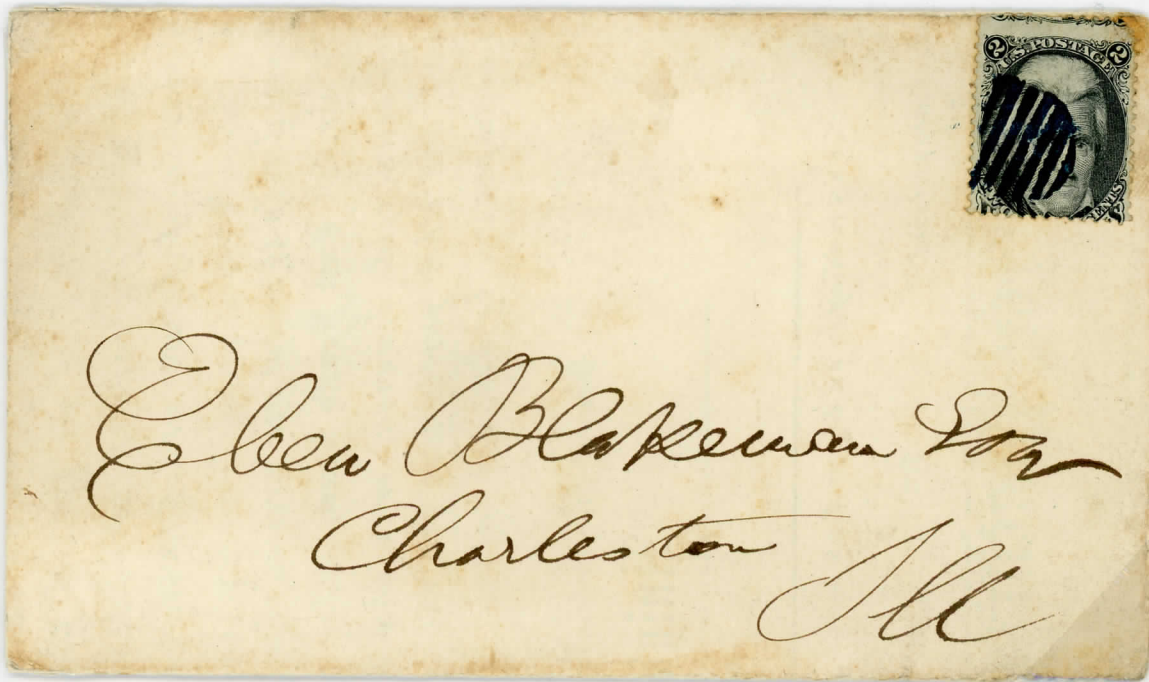 2 U.S. POSTAGE 2
CENTS
Eben Blakeman Esq
Charleston
Ill